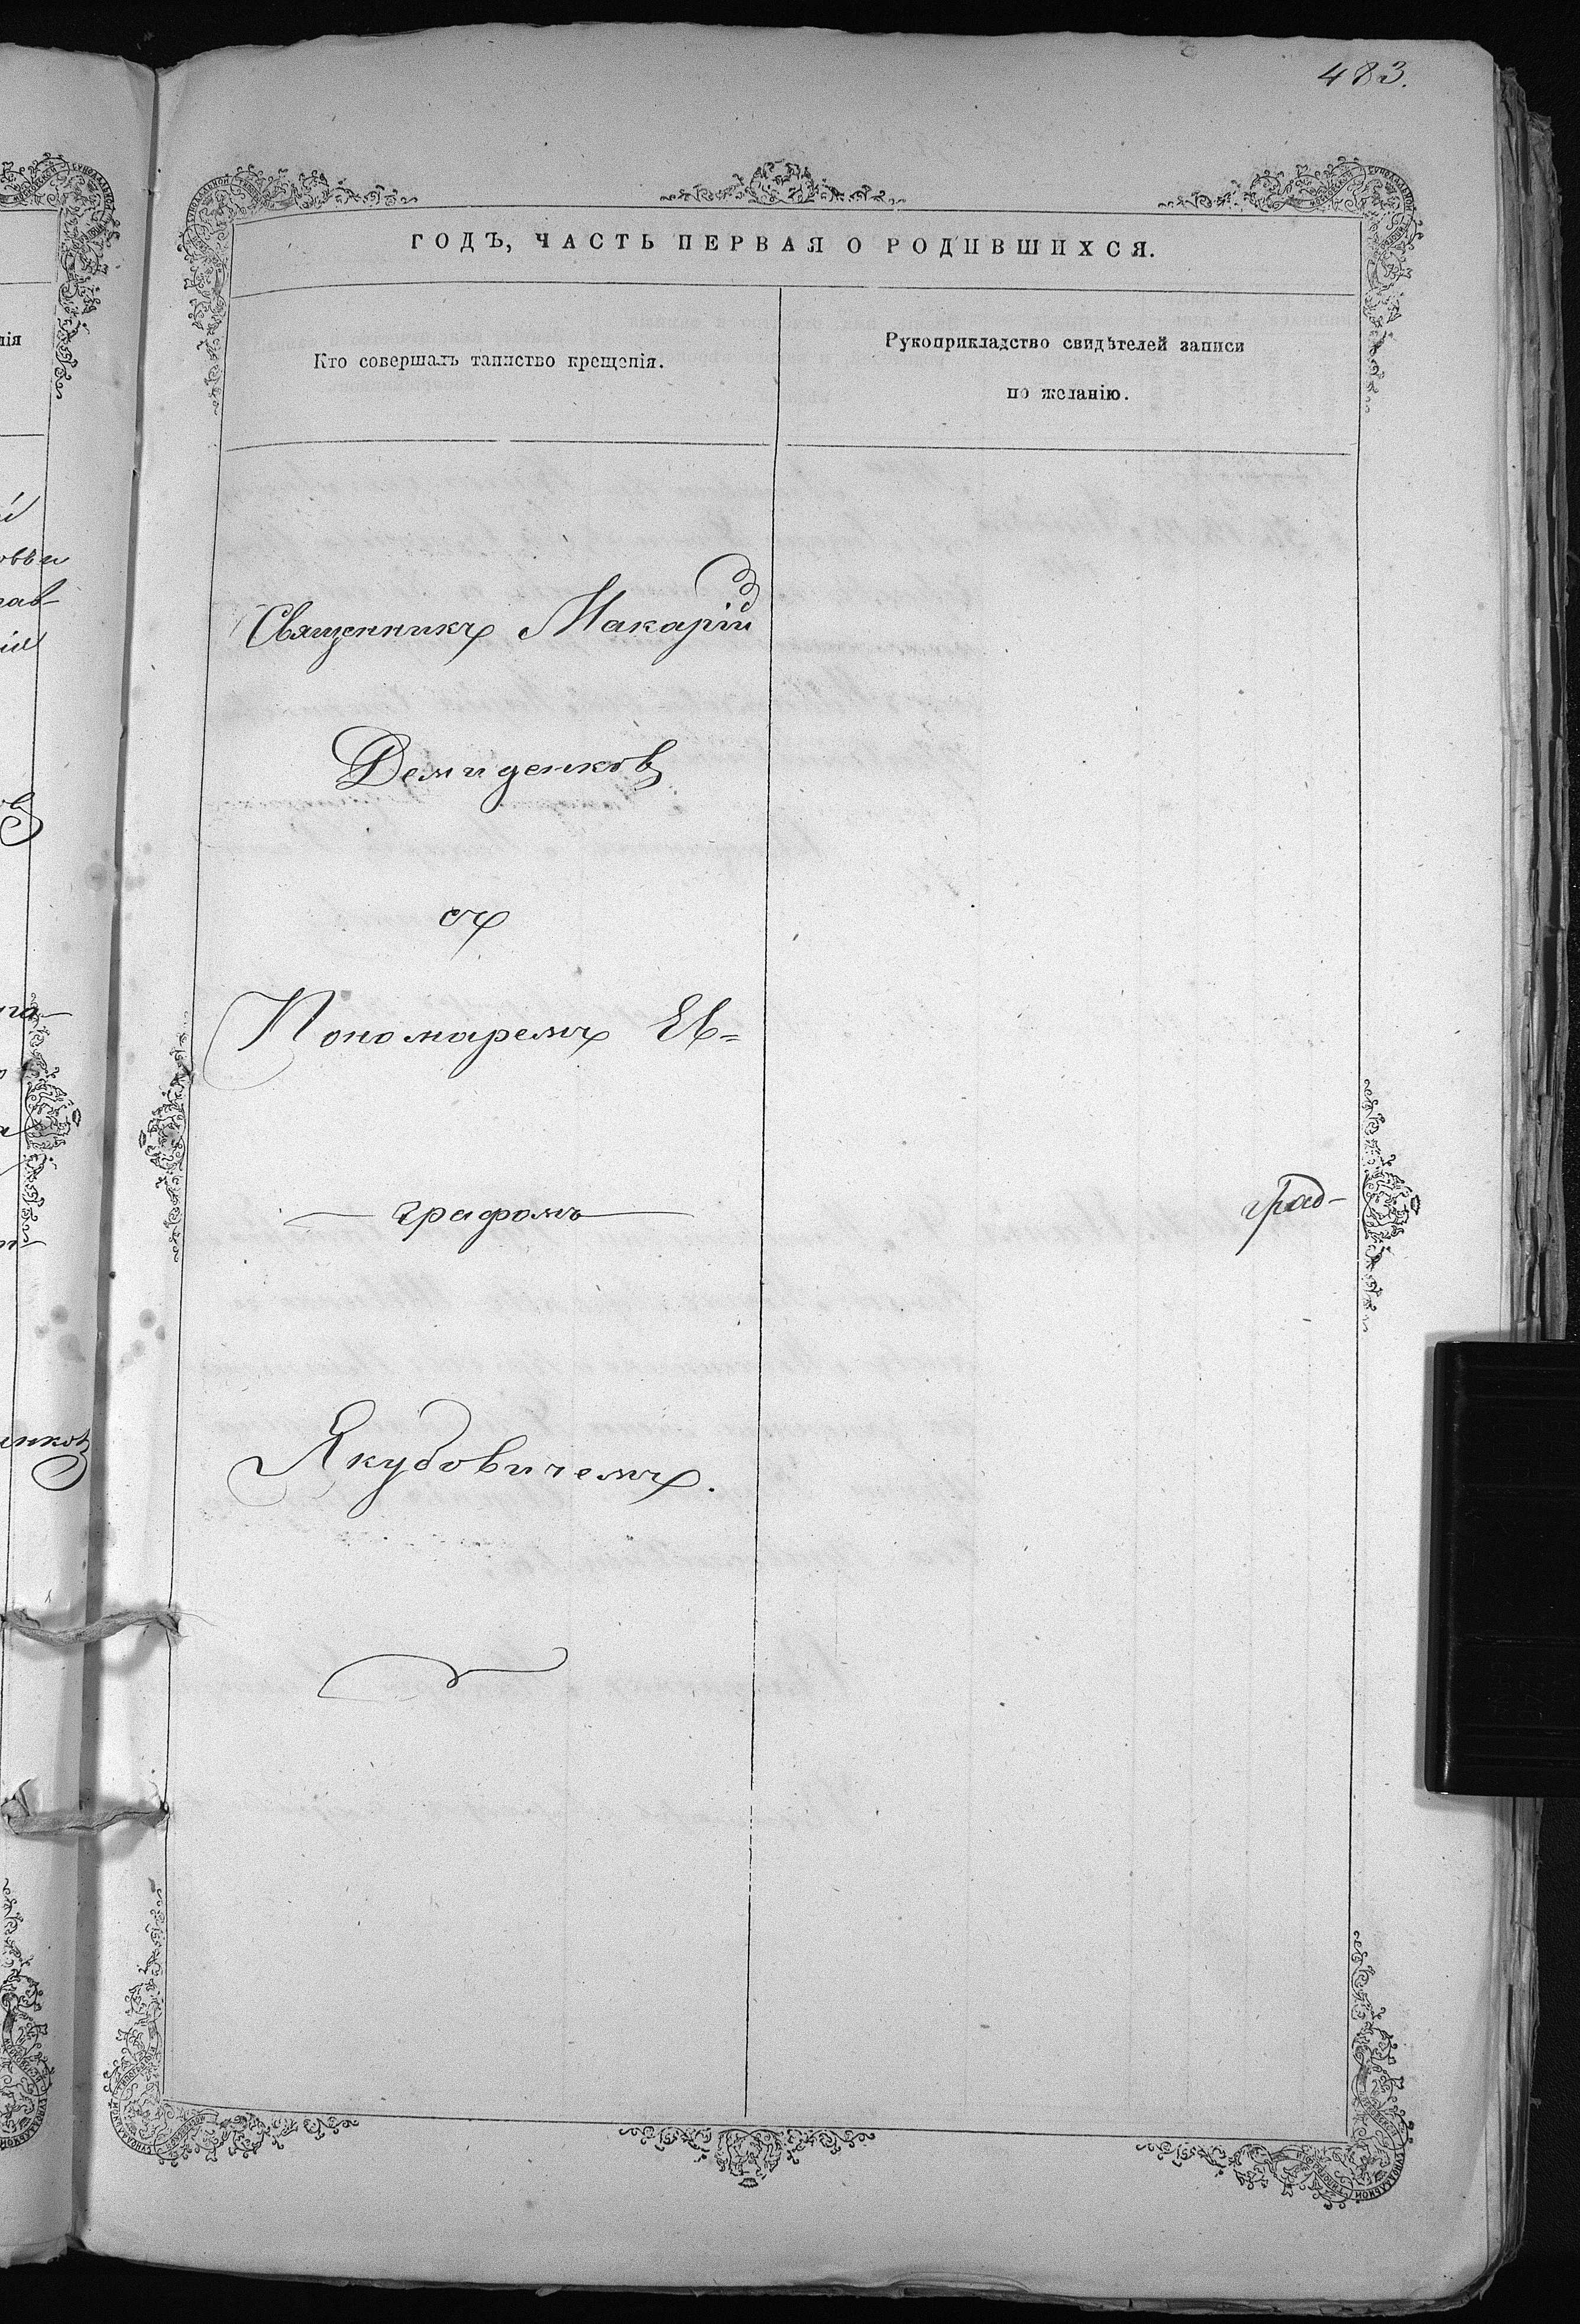 483.
ГОДЪ, ЧАСТЬ ПЕРВАЯ О РОДИВШИХСЯ.
Кто совершалъ таинство крещенія.
Рукоприкладство свидѣтелей записи
по желанію.
Священникъ Макарій
Демиденковъ
съ
Пономаремъ Ев=
графомъ
Якубовичемъ.